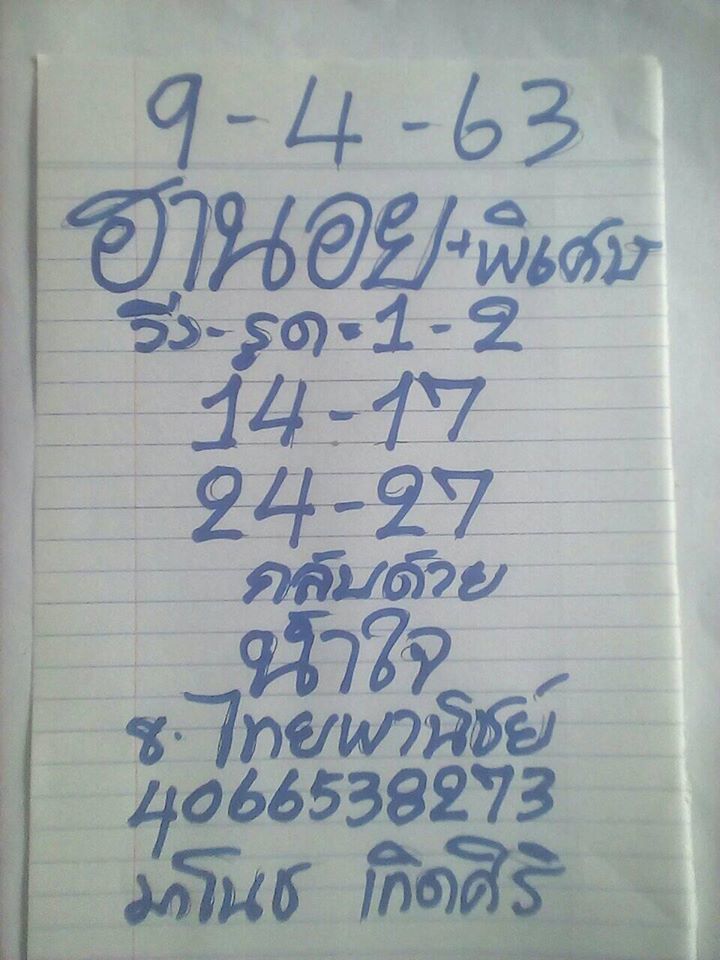 9-4-63
ฮานอย+พิเศษ
วิ่ง-รูด=1-2
14-17
24-27
กลับด้วย
น้ำใจ
ธ.ไทยพานิชย์
4066538273
มาโนช เกิดศิริ